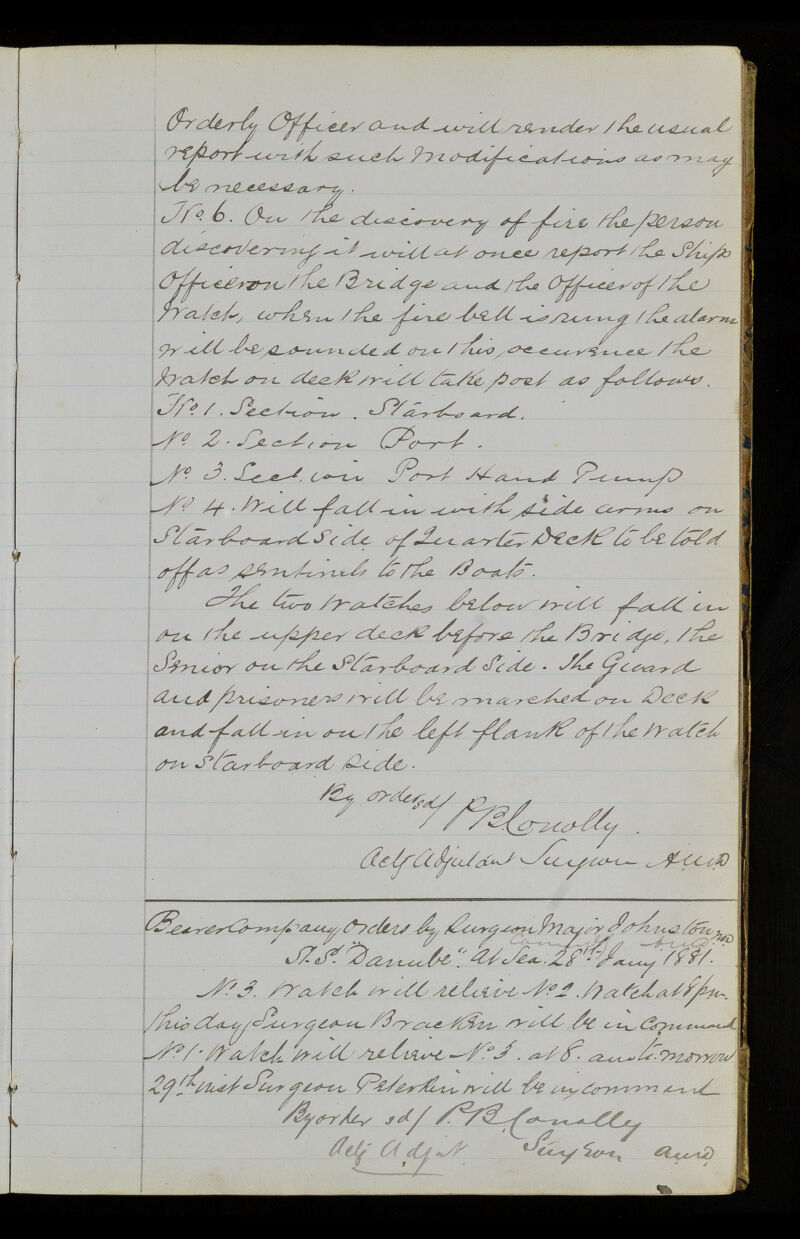 Orderly Officer and will render the usual
report with such Modifications as may
be necessary.
No. 6. On the discovery of fire the person
discovering it will at once report the Ship
Officer on the Bridge and the Officer of the
Watch, when the fire bell is rung the alarm
will be sounded on this occurence the
Watch on deck will take post as follows.
No. 1. Section. Starboard.
No 2. Section Port.
No 3. Section Port Hand Pump
No 4. Will fall in with side arms on
Starboard side of Quarter Deck to be told
off as sentinels to the Boats.
The two Watches below will fall in
on the upper deck before the Bridge, the
Senior on the Starboard Side. The Guard
and prisoners will be marched on Deck
and fall in on the left flank of the Watch
on Starboard side.
By order sd/ P. B. Conolly.
Actg Adjutant Surgeon A.M.D
Bearer Company Orders by Surgeon Major Johnston
S.S. "Danube". At Sea 28th Jany 1881.
No. 3. Watch will relieve No 2. Watch at 8 pm.
this day Surgeon Bracken will be in Command
No 1. Watch will relieve No. 3. at 8. am to morrow
29th inst Surgeon Peterkin will be in command
By order sd/ P. B. Conolly
Actg Adjut. Surgeon AMD